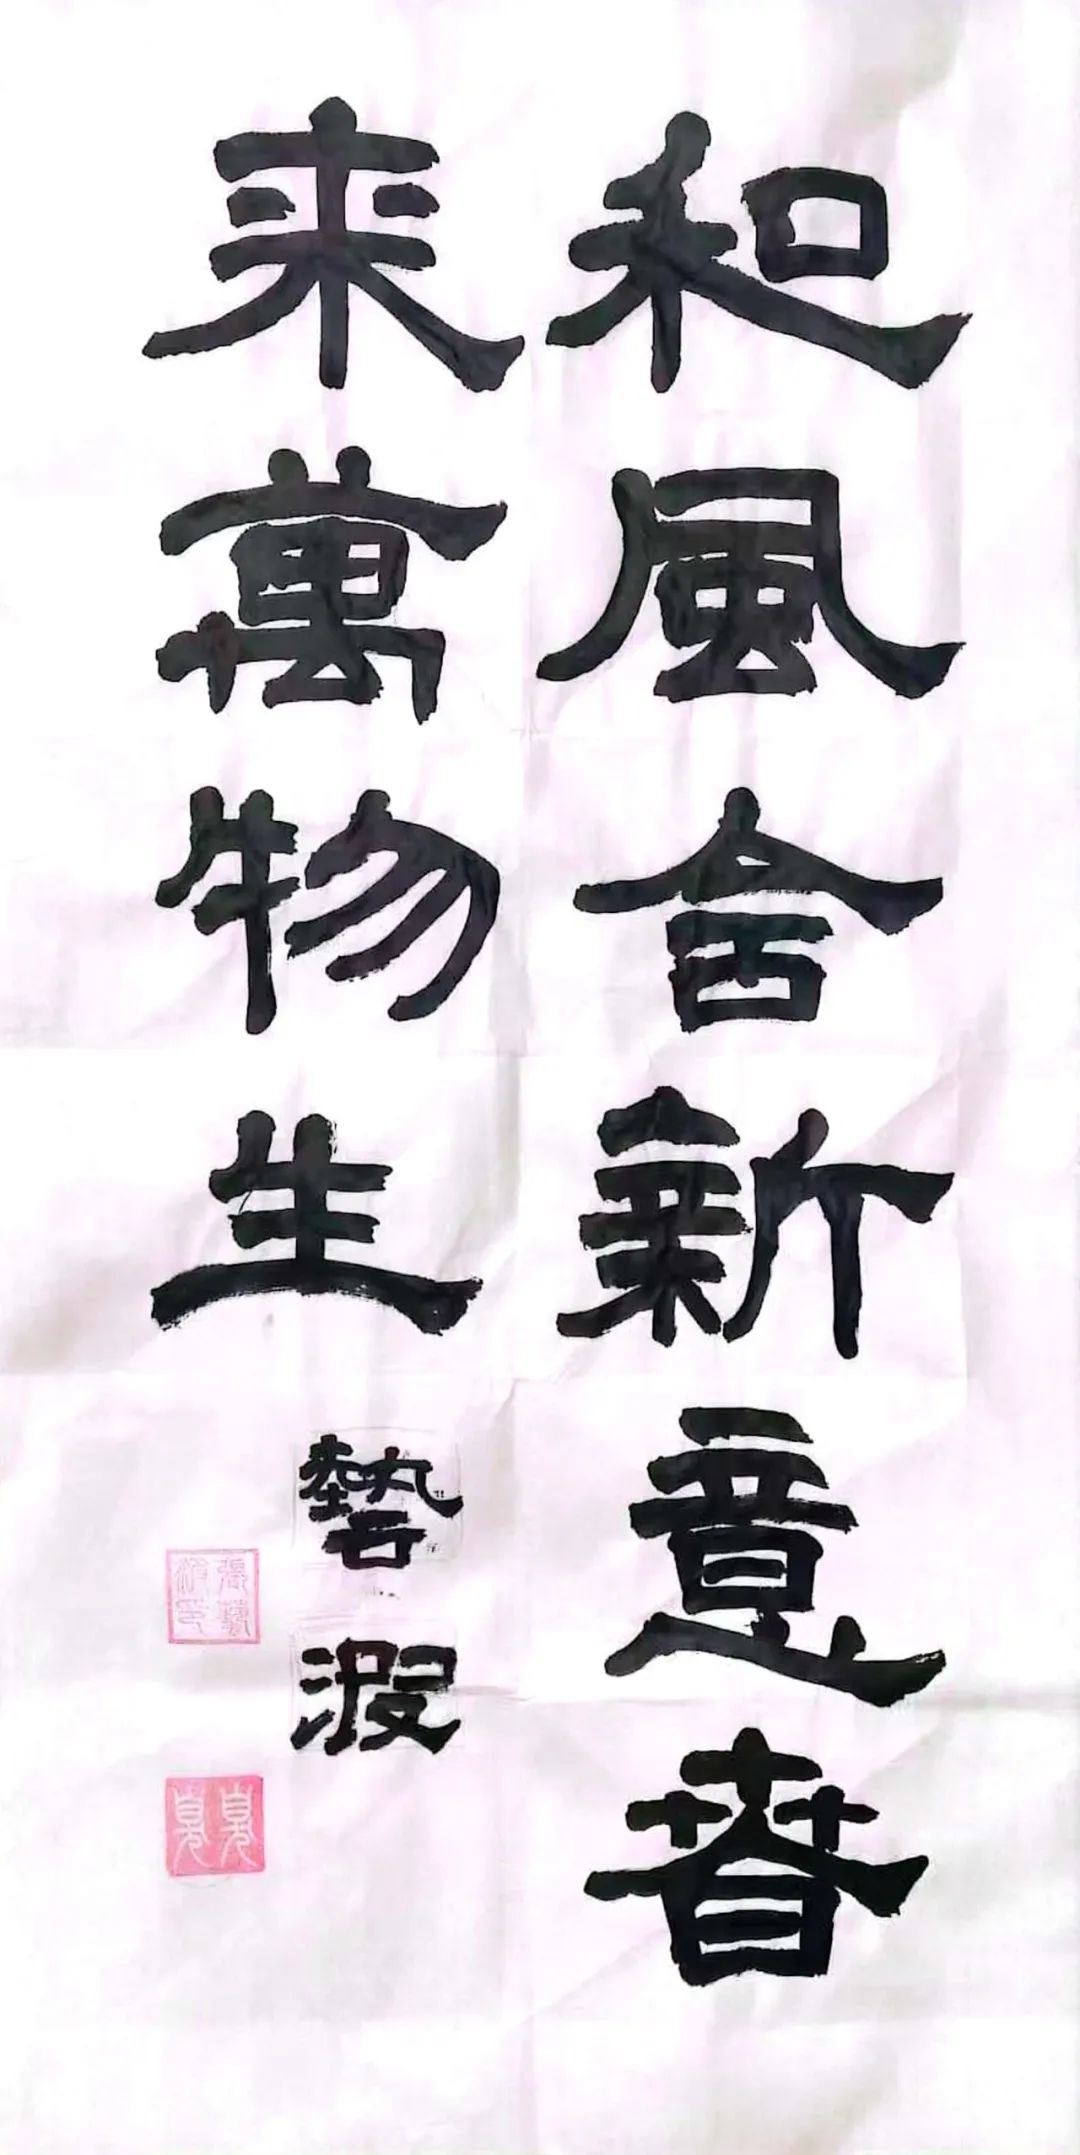 和風含新意春
来萬物生
藝